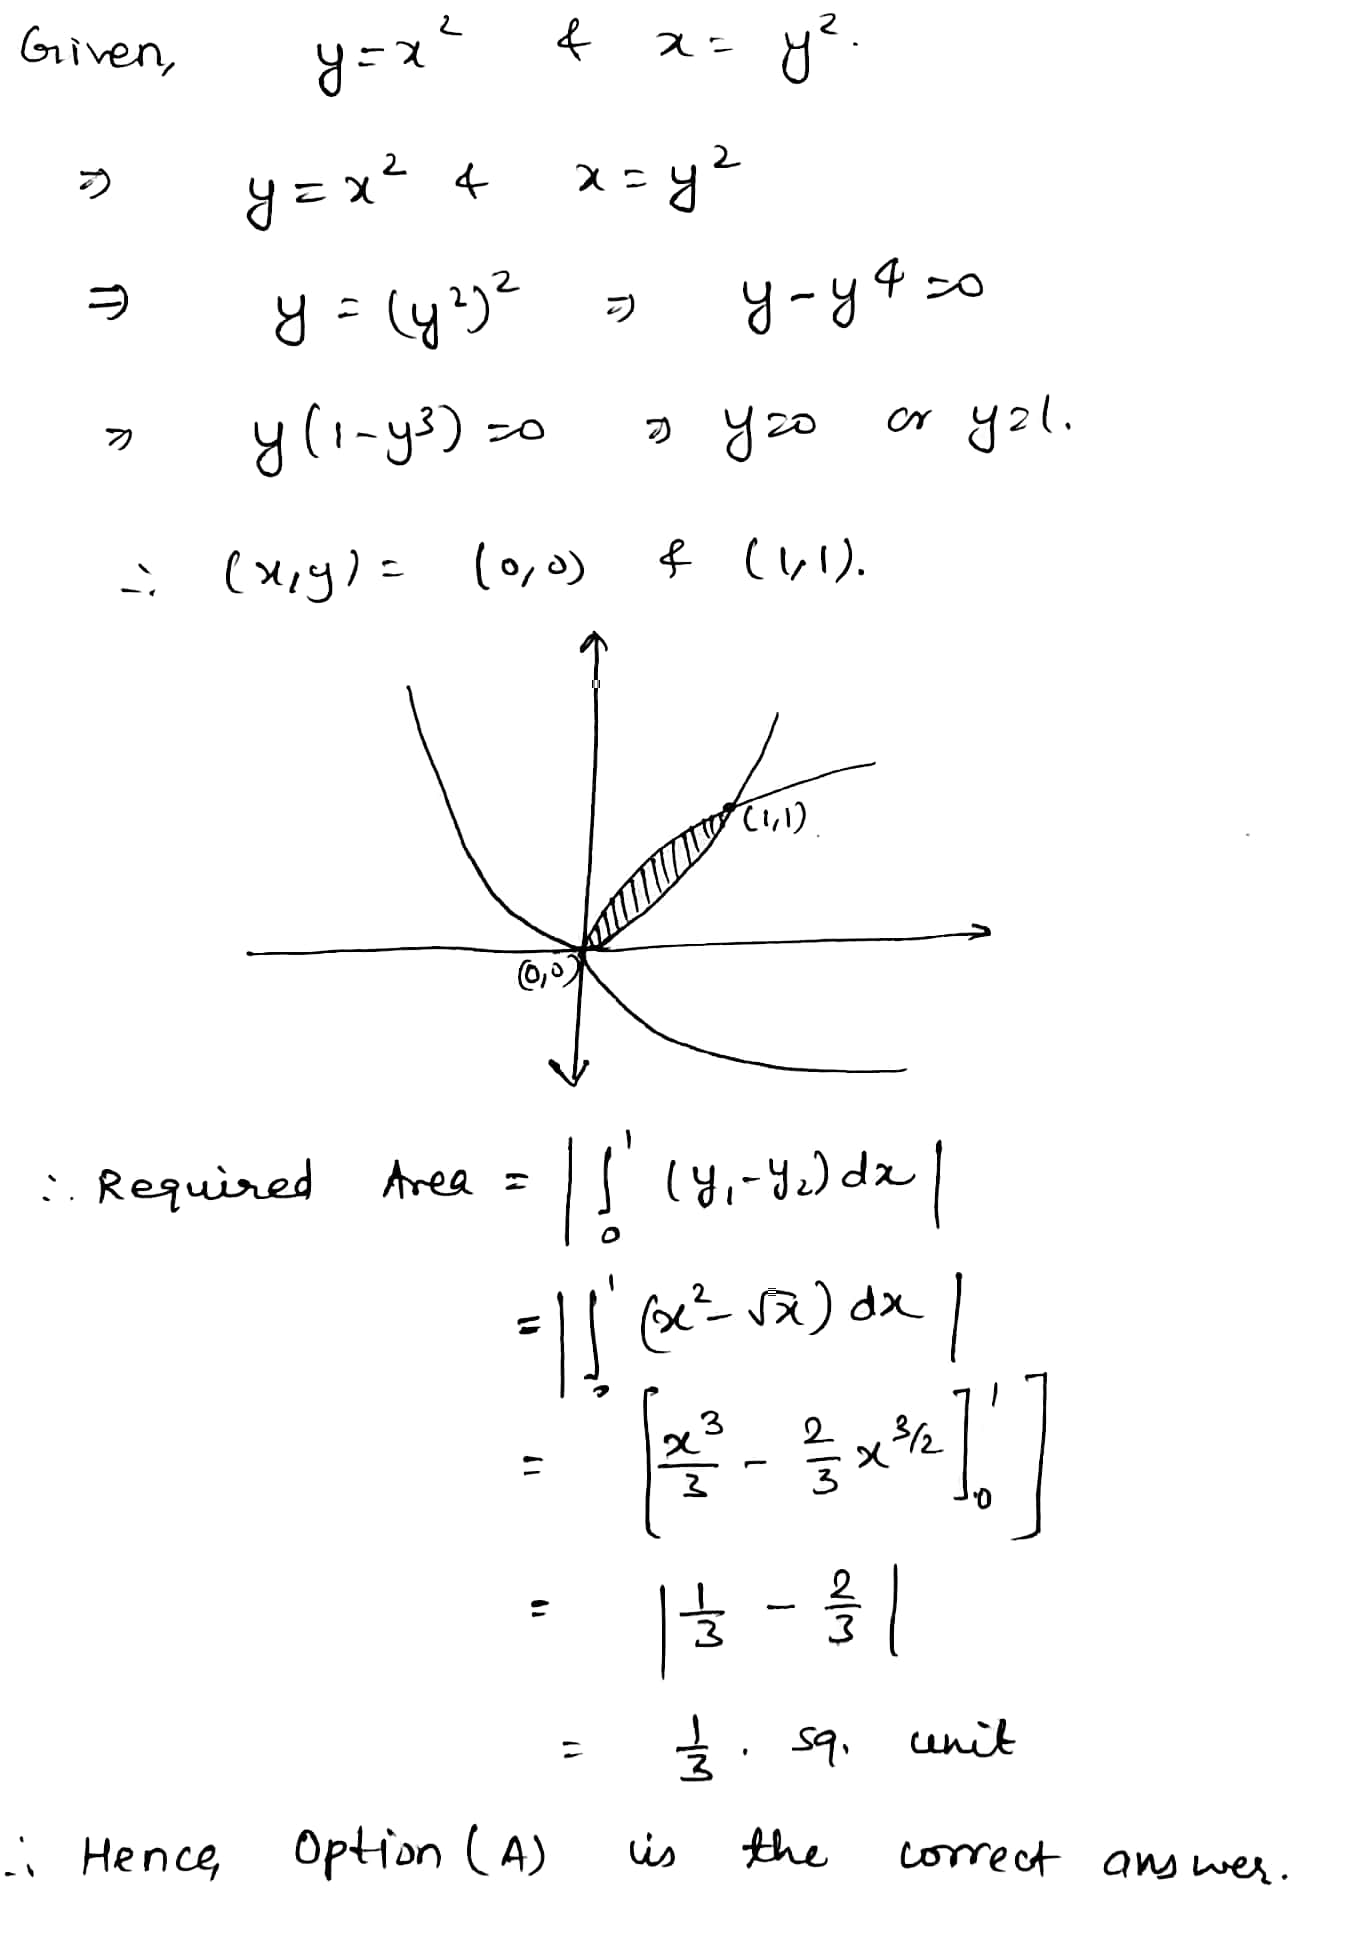 Given, y=x² & x= y².
⇒ y=x² & x=y²
⇒ y = (y²)² ⇒ y-y⁴=0
⇒ y(1-y³)=0 ⇒ y=0 or y=1.
∴ (x,y) = (0,0) & (1,1).
(1,1).
(0,0)
∴ Required Area = |∫₀¹ (y₁-y₂)dx|
= |∫₀¹ (x²-√x) dx|
= [x³/3 - 2/3 x^3/2]₀¹]
= |1/3 - 2/3|
= 1/3. sq. unit
∴ Hence, Option (A) is the correct answer.